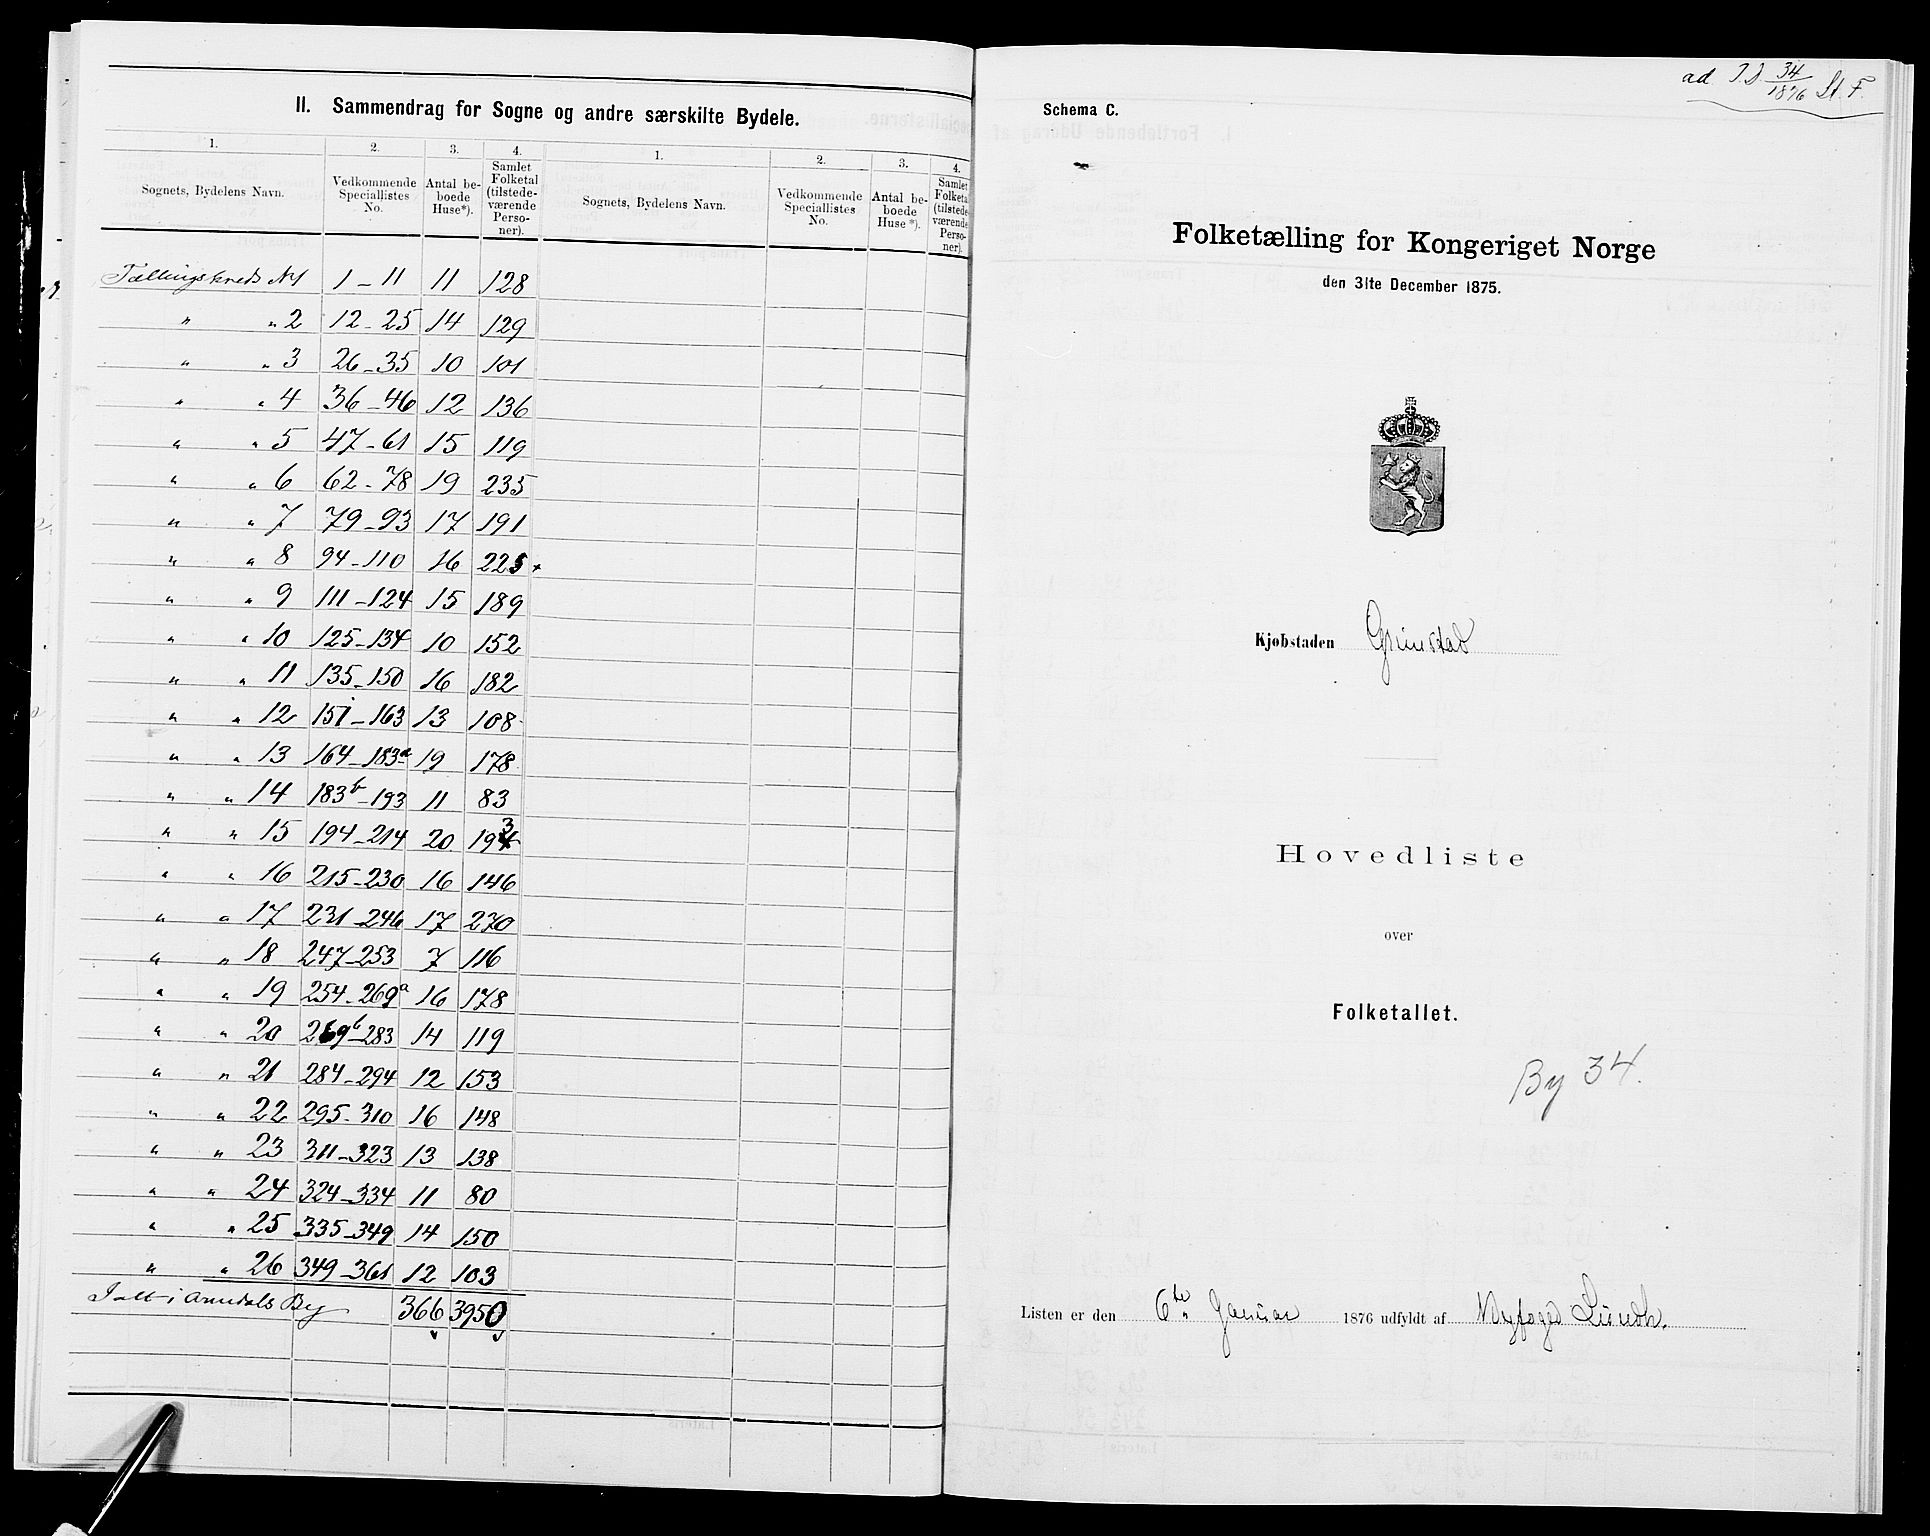 II. Sammendrag for Sogne og andre særskilte Bydele.
1. 2. 3. 4. 1. 2. 3. 4.
Sognets, Bydelens Navn. Vedkommende Speciallistes No. Antal beboede Huse*). Samlet Folketal (tilstedeværende Personer). Sognets, Bydelens Navn. Vedkommende Speciallistes No. Antal beboede Huse*). Samlet Folketal (tilstedeværende Personer).
Tællingskreds No 1 1-11 11 128
" " 2 12-25 14 129
" " 3 26-35 10 101
" " 4 36-46 12 136
" " 5 47-61 15 119
" " 6 62-78 19 235
" " 7 79-93 17 191
" " 8 94-110 16 225
" " 9 111-124 15 189
" " 10 125-134 10 152
" " 11 135-150 16 182
" " 12 151-163 13 108
" " 13 164-183a 19 178
" " 14 183b-193 11 83
" " 15 194-214 20 193
" " 16 215-230 16 146
" " 17 231-246 17 270
" " 18 247-253 7 116
" " 19 254-269a 16 178
" " 20 269b-283 14 119
" " 21 284-294 12 153
" " 22 295-310 16 148
" " 23 311-323 13 138
" " 24 324-334 11 80
" " 25 335-349 14 150
" " 26 349-361 12 103
Ialt i Arendals By 366 3950
ad. J.D. 34/1876 St. F.
Schema C.
Folketælling for Kongeriget Norge
den 31te December 1875.
Kjøbstaden Grimstad
Hovedliste
over
Folketallet.
By 34.
Listen er den 6te Januar 1876 udfyldt af Byfoged Lundh.